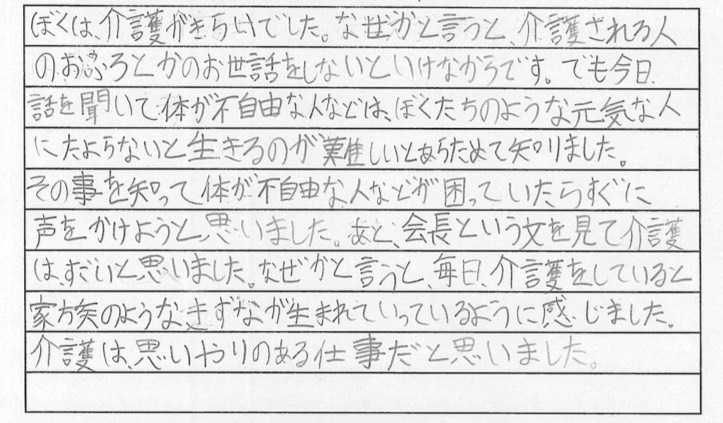 ぼくは、介護がきらいでした。なぜかと言うと、介護される人
のおふろとかのお世話をしないといけないからです。でも今日
話を聞いて体が不自由な人などは、ぼくたちのような元気な人
にたよらないと生きるのが難しいとあらためて知りました。
その事を知って体が不自由な人などが困っていたらすぐに
声をかけようと思いました。あと、会長という文を見て介護
は、すごいと思いました。なぜかと言うと、毎日、介護をしていると
家族のようなきずなが生まれていっているように感じました。
介護は、思いやりのある仕事だと思いました。